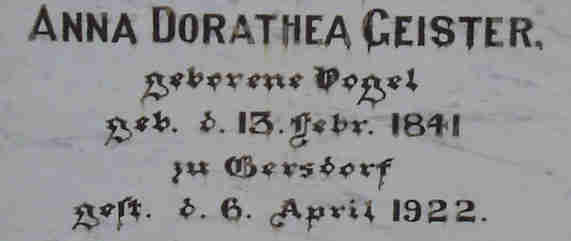 ANNA DORATHEA GEISTER,
geborene Vogel
geb. d. 13. Febr. 1841
zu Gersdorf
gest. d. 6. April 1922.